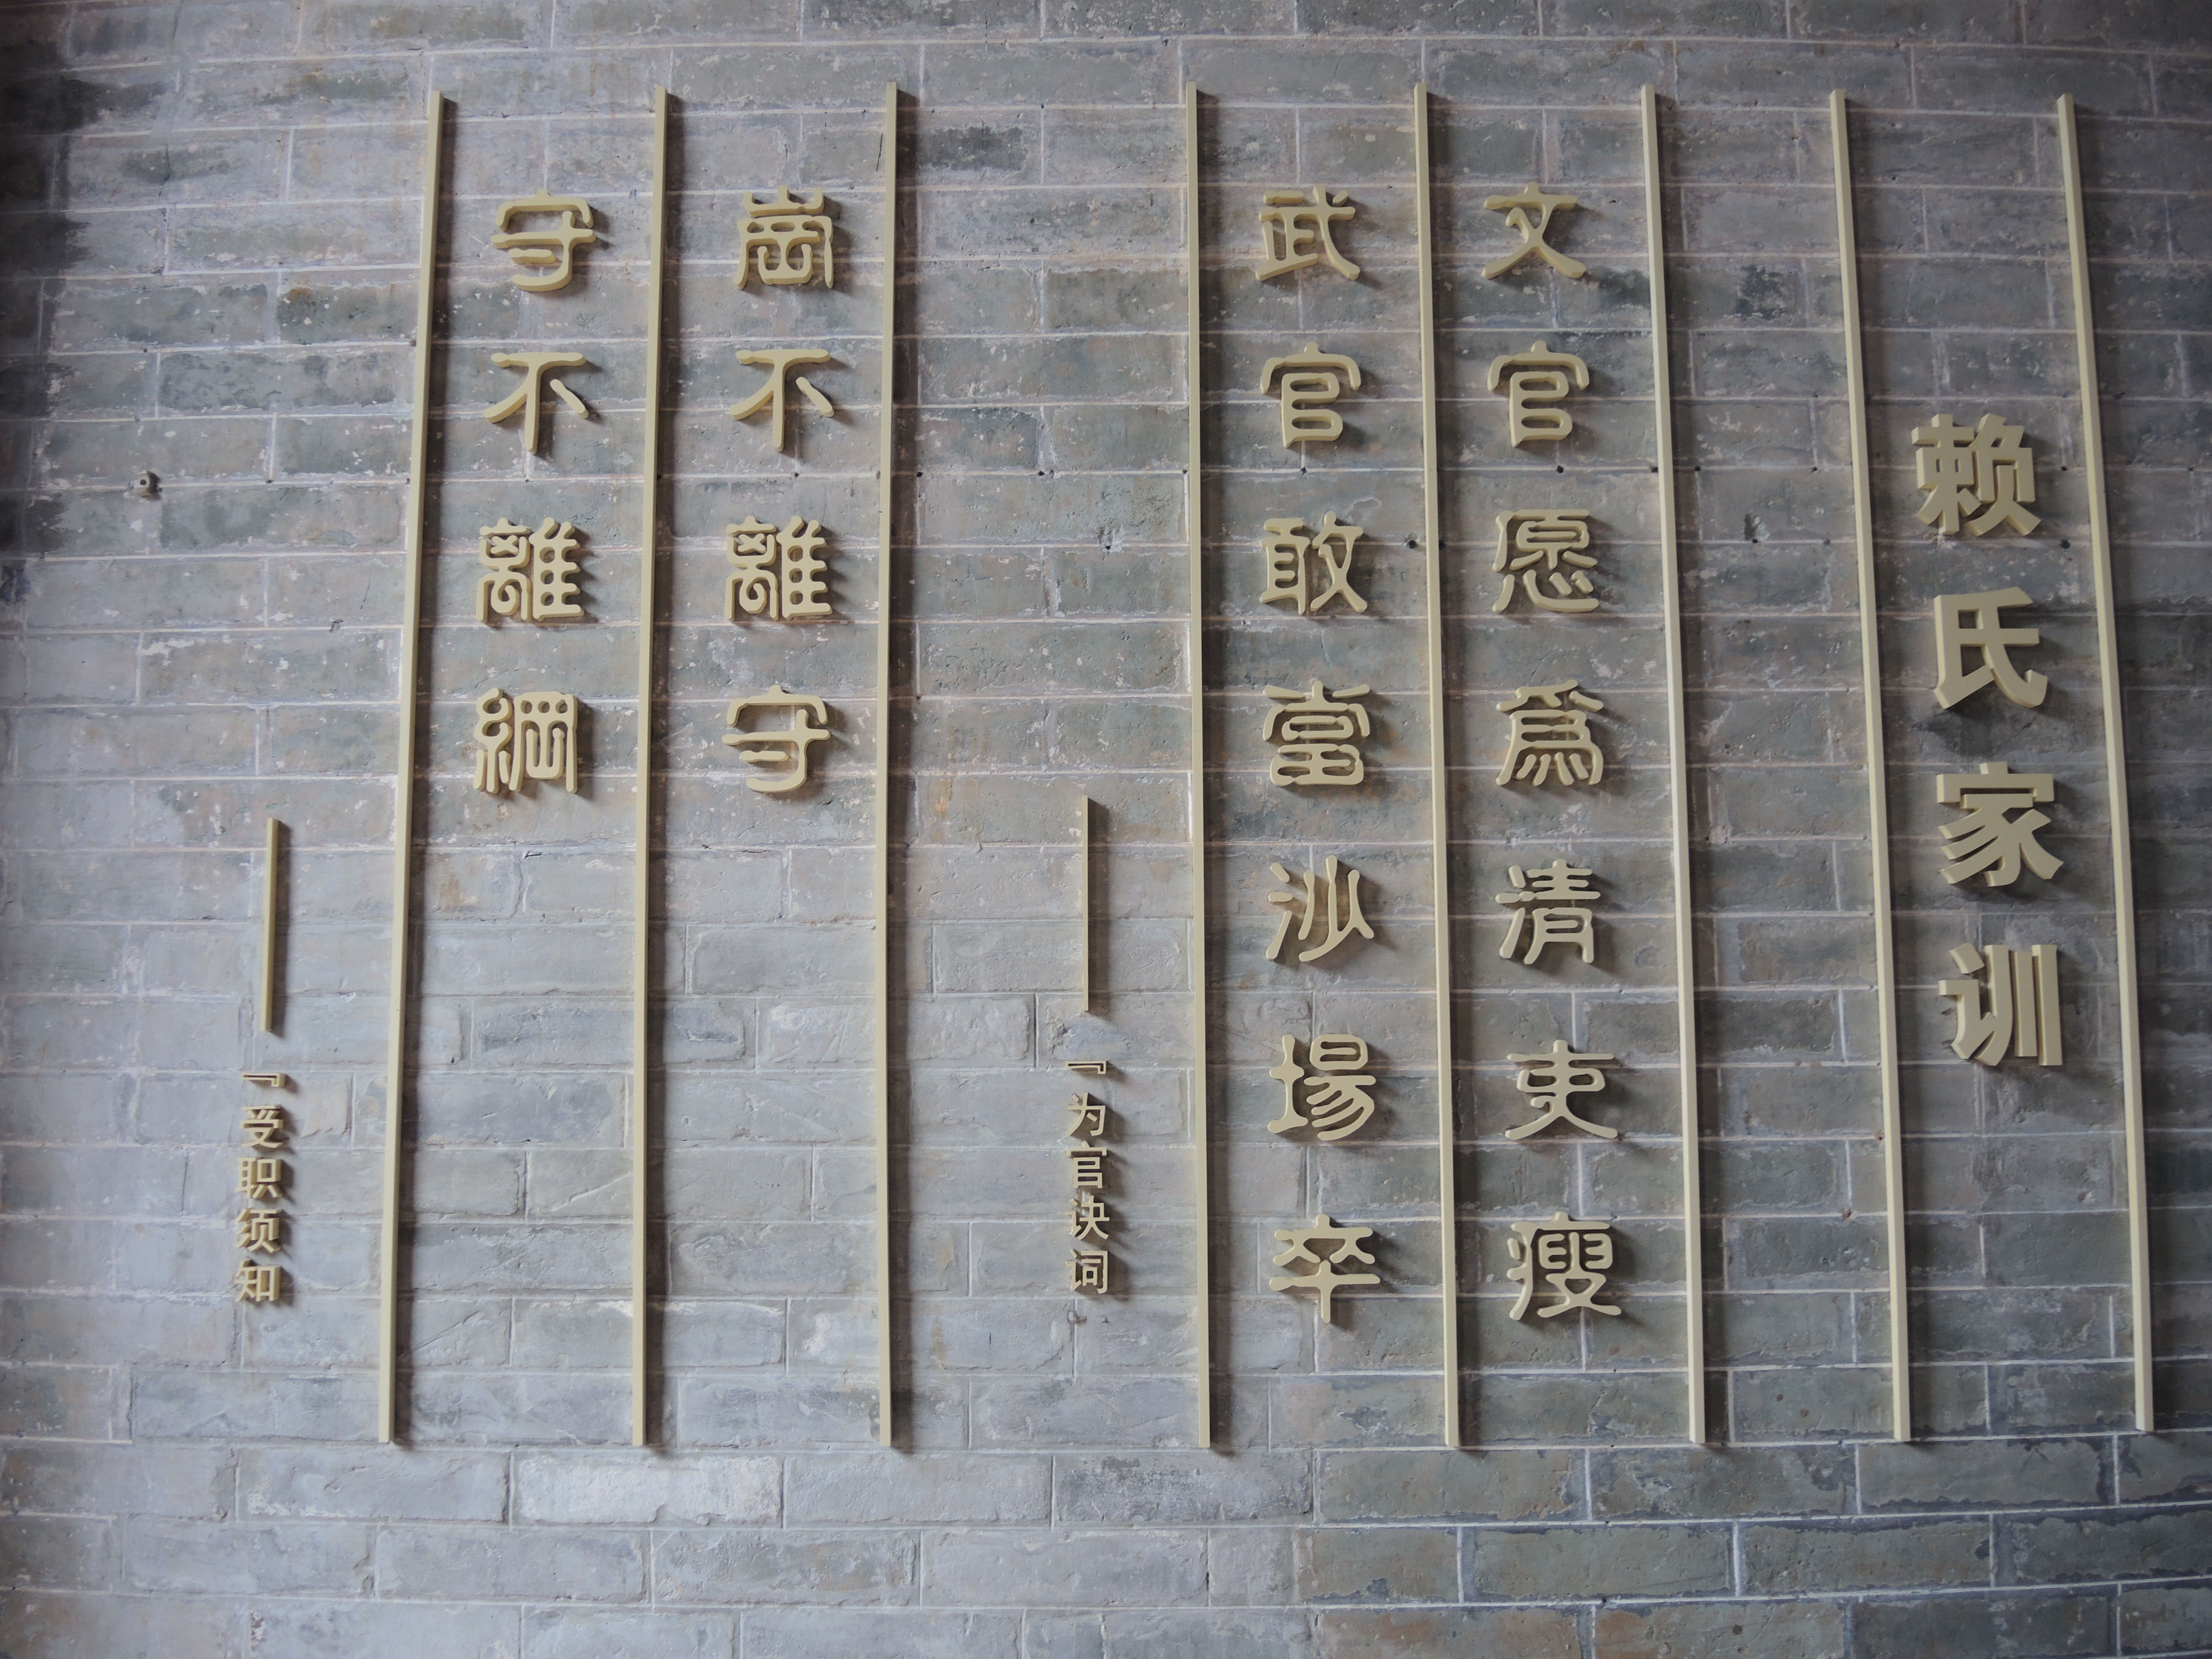 赖氏家训
文官愿爲清吏瘦
武官敢當沙場卒
『为官诀词
崗不離守
守不離綱
『受职须知